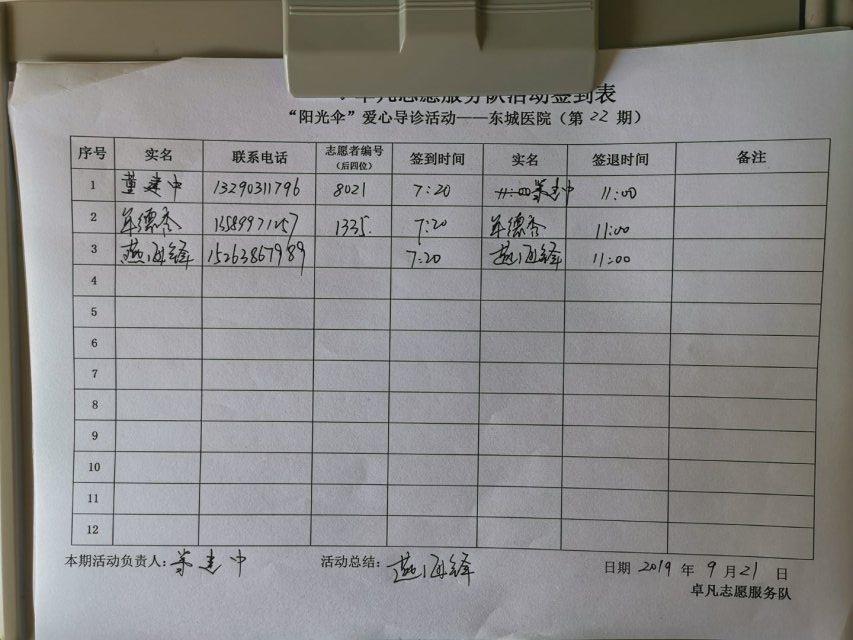 卓凡志愿服务队活动签到表
“阳光伞”爱心导诊活动——东城医院（第 22 期）
序号 实名 联系电话 志愿者编号（后四位） 签到时间 实名 签退时间 备注
1 董建中 13290311796 8021 7:20 董建中 11:00
2 牟德秀 1335 7:20 牟德秀 11:00
3 燕海峰 15263867989 7:20 燕海峰 11:00
4
5
6
7
8
9
10
11
12
本期活动负责人：董建中 活动总结：燕海峰 日期 2019 年 9 月 21 日
卓凡志愿服务队